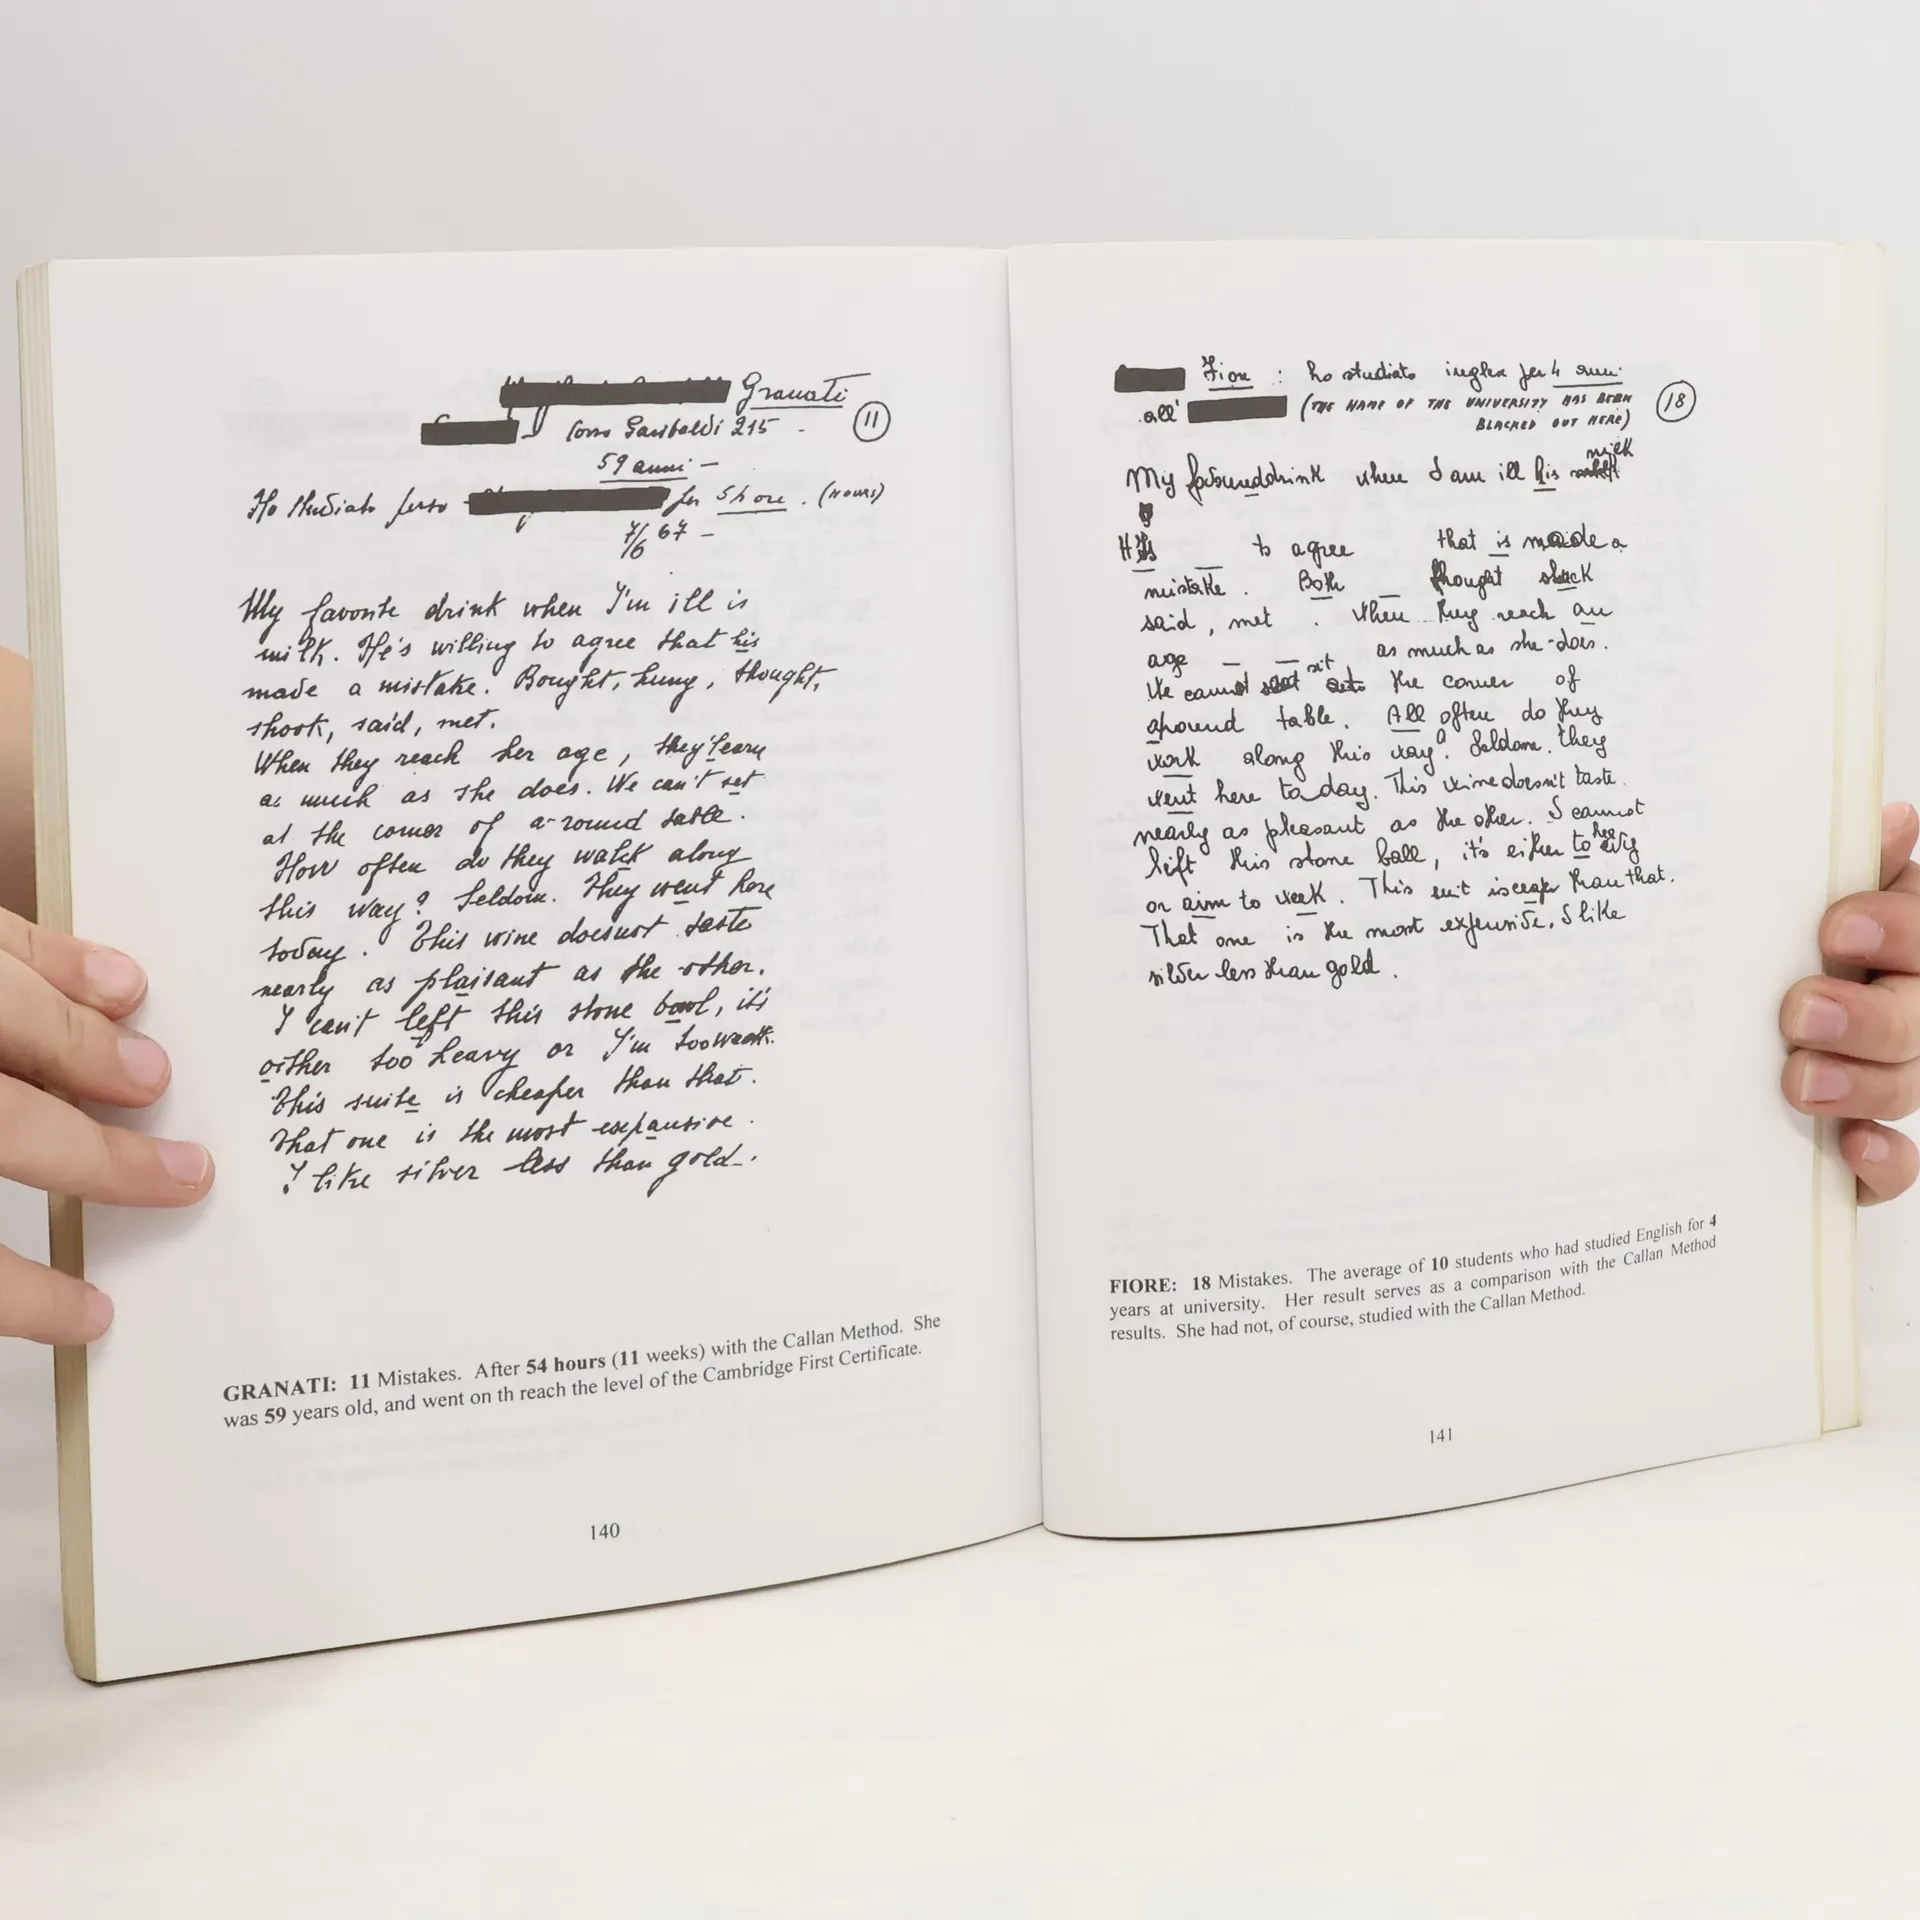 Granati
11
Corso Garibaldi 215 -
59 anni -
Ho studiato perso per 54 ore. (HOURS)
7/6 67 -
My favorite drink when I'm ill is
milk. He's willing to agree that his
made a mistake. Bought, hung, thought,
shook, said, met.
When they reach her age, they'learn
as much as she does. We can't set
at the corner of a-round table.
How often do they walk along
this way? Seldom. They went here
today. This wine doesnot taste
nearly as plaisant as the other.
I can't left this stone bowl, it's
either too heavy or I'm too weak.
This suite is cheaper than that.
That one is the most expansive.
I like silver less than gold-.
GRANATI: 11 Mistakes. After 54 hours (11 weeks) with the Callan Method. She
was 59 years old, and went on th reach the level of the Cambridge First Certificate.
140
Fiore : ho studiato inglese per 4 anni
all' (THE NAME OF THE UNIVERSITY HAS BEEN
BLACKED OUT HERE)
18
milk
My drink when I am ill his
to agree that is made a
mistake. Both thought
said, met . When they reach an
age as much as she does.
sit
We cannot the corner of
around table. All often do they
work along this way? Seldom. they
went here today. This wine doesn't taste
nearly as pleasant as the other. I cannot
left this stone ball, it's either to
or aim to week. This suit is than that.
That one is the most expensive. I like
silver less than gold.
FIORE: 18 Mistakes. The average of 10 students who had studied English for 4
years at university. Her result serves as a comparison with the Callan Method
results. She had not, of course, studied with the Callan Method.
141